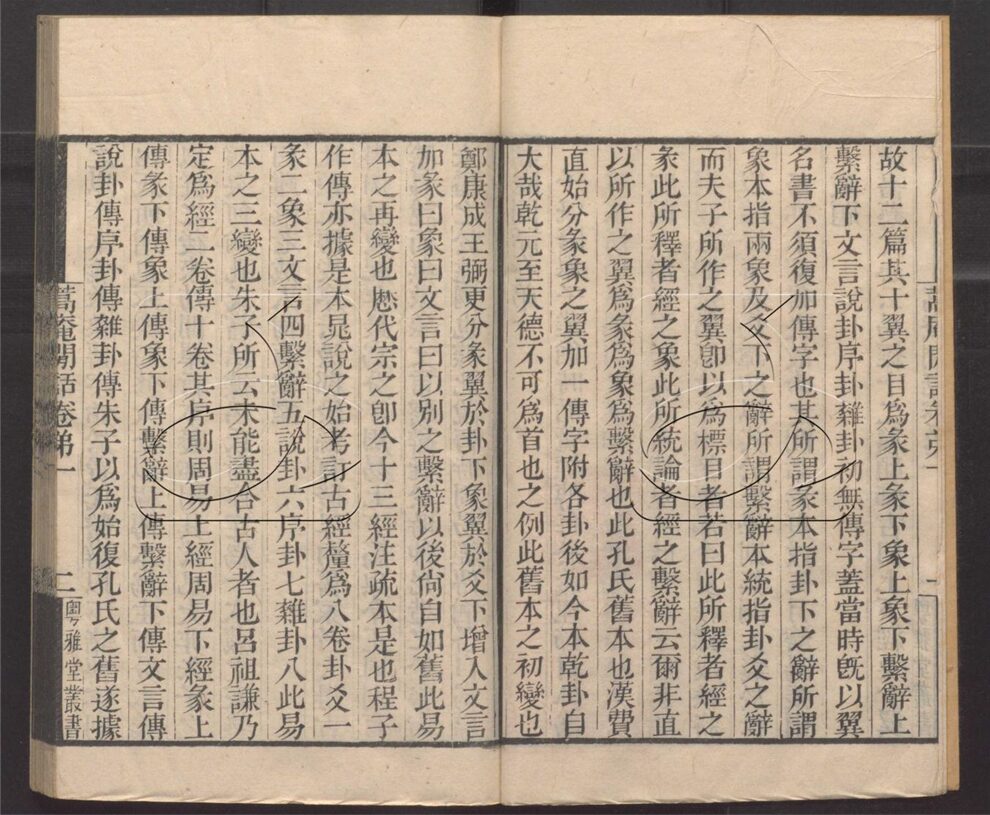 故十二篇其十翼之目爲彖上彖下象上象下繫辭上
繫辭下文言說卦序卦雜卦初無傳字蓋當時旣以翼
名書不須復加傳字也其所謂彖本指卦下之辭所謂
象本指兩象及爻下之辭所謂繫辭本統指卦爻之辭
而夫子所作之翼卽以爲標目者若曰此所釋者經之
彖此所釋者經之象此所統論者經之繫辭云爾非直
以所作之翼爲彖爲象爲繫辭也此孔氏舊本也漢費
直始分彖象之翼加一傳字附各卦後如今本乾卦自
大哉乾元至天德不可爲首也之例此舊本之初變也
鄭康成王弼更分彖翼於卦下象翼於爻下增入文言
加彖曰象曰文言曰以別之繫辭以後尙自如舊此易
本之再變也厯代宗之卽今十三經注疏本是也程子
作傳亦據是本晁說之始考訂古經釐爲八卷卦爻一
彖二象三文言四繫辭五說卦六序卦七雜卦八此易
本之三變也朱子所云未能盡合古人者也呂祖謙乃
定爲經二卷傳十卷其序則周易上經周易下經彖上
傳彖下傳象上傳象下傳繫辭上傳繫辭下傳文言傳
說卦傳序卦傳雜卦傳朱子以爲始復孔氏之舊遂據
蒿庵閒話卷第一
二
粵雅堂叢書